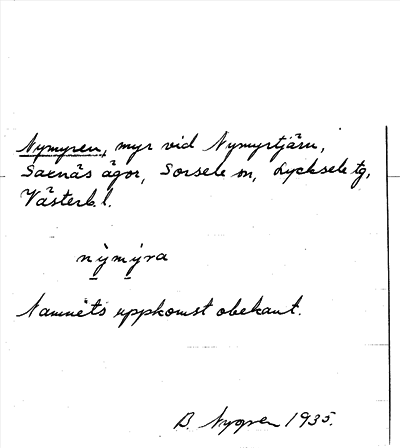 Nymyren, myr vid Nymyrtjärn,
Saxnäs ägor, Sorsele sn, Lycksele tg,
Västerb. l.
nỳmýra
Namnets uppkomst obekant.
B. Nygren 1935.